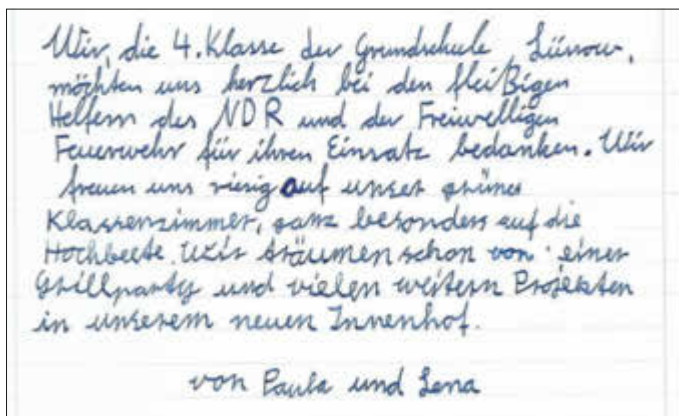 Wir, die 4. Klasse der Grundschule Lüssow,
möchten uns herzlich bei den fleißigen
Helfern des NDR und der Freiwelligen
Feuerwehr für ihren Einsatz bedanken. Wir
freuen uns riesig auf unser grünes
Klassenzimmer, ganz besonders auf die
Hochbeete. Wir träumen schon von einer
Grillparty und vielen weitern Projekten
in unserem neuen Innenhof.
von Paula und Lena